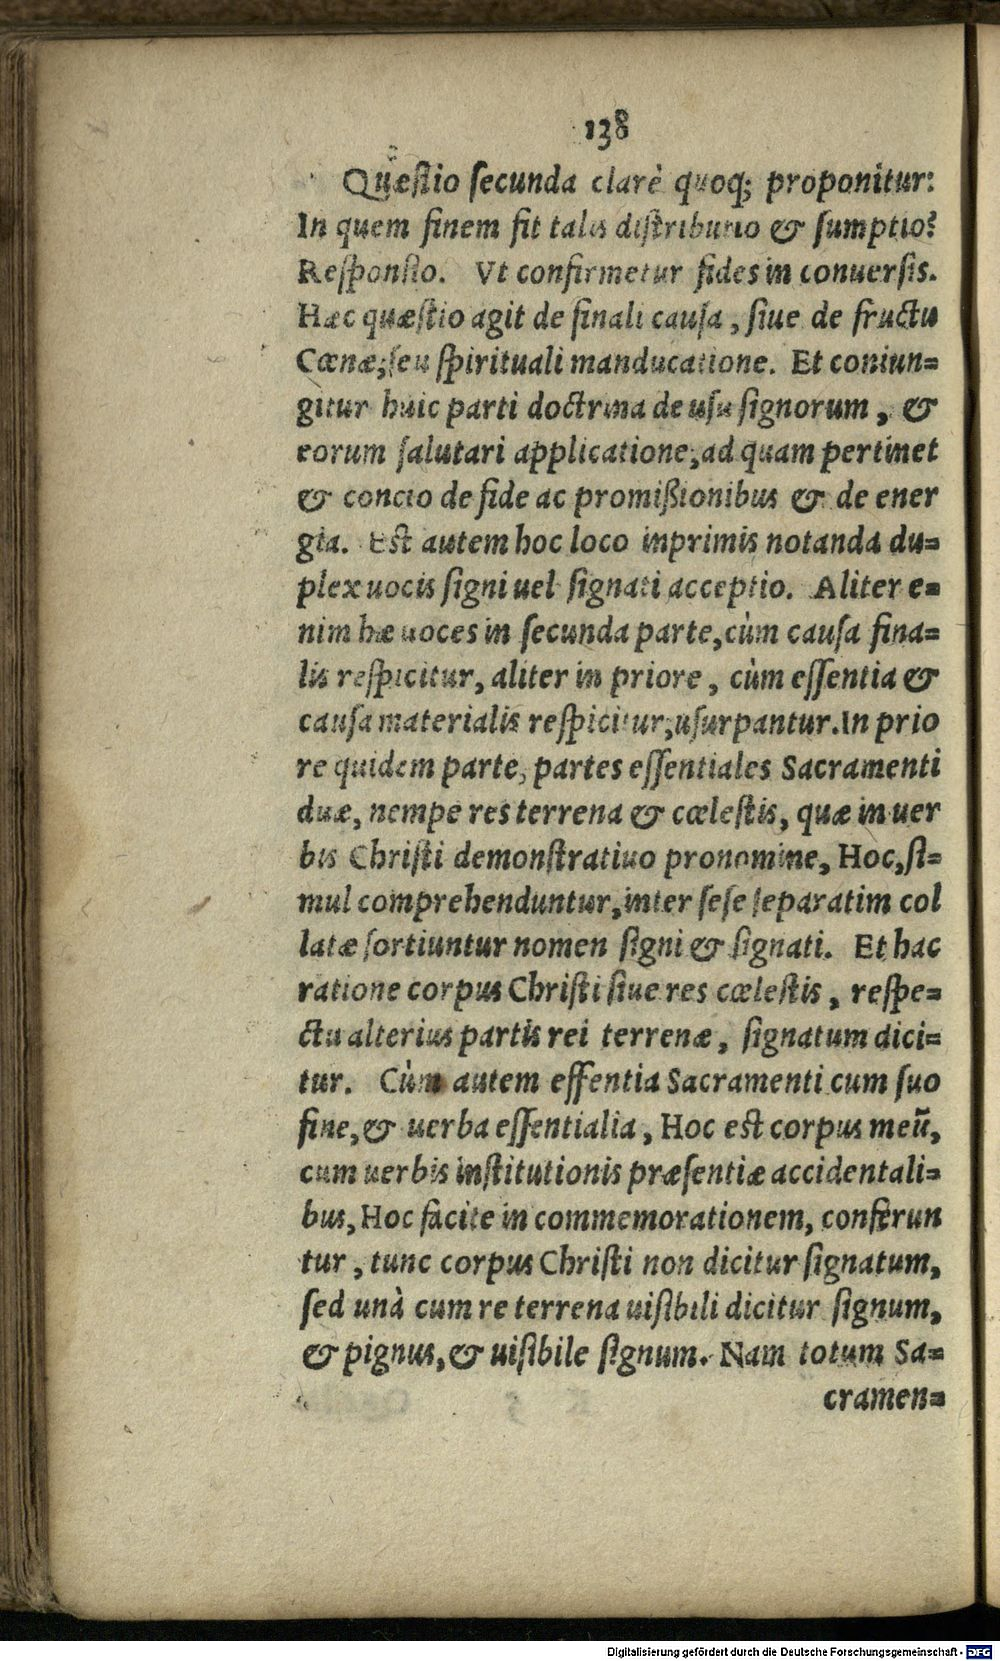 138
Quæstio secunda clarè quoq; proponitur:
In quem finem fit talis distributio & sumptio?
Responsio. Vt confirmetur fides in conuersis.
Hæc quæstio agit de finali causa, siue de fructu
Cœnæ, seu spirituali manducatione. Et coniun=
gitur huic parti doctrina de usu signorum, &
eorum salutari applicatione, ad quam pertinet
& concio de fide ac promißionibus & de ener
gia. Est autem hoc loco inprimis notanda du=
plex uocis signi uel signati acceptio. Aliter e=
nim hæ uoces in secunda parte, cùm causa fina=
lis respicitur, aliter in priore, cùm essentia &
causa materialis respicitur, usurpantur. In prio
re quidem parte, partes essentiales Sacramenti
duæ, nempe res terrena & cœlestis, quæ in uer
bis Christi demonstratiuo pronomine, Hoc, si=
mul comprehenduntur, inter sese separatim col
latæ sortiuntur nomen signi & signati. Et hac
ratione corpus Christi siue res cœlestis, respe=
ctu alterius partis rei terrenæ, signatum dici=
tur. Cùm autem essentia Sacramenti cum suo
fine, & uerba essentialia, Hoc est corpus meū,
cum uerbis institutionis præsentiæ accidentali=
bus, Hoc facite in commemorationem, conferun
tur, tunc corpus Christi non dicitur signatum,
sed unà cum re terrena uisibili dicitur signum,
& pignus, & uisibile signum. Nam totum Sa=
cramen=
Digitalisierung gefördert durch die Deutsche Forschungsgemeinschaft - DFG